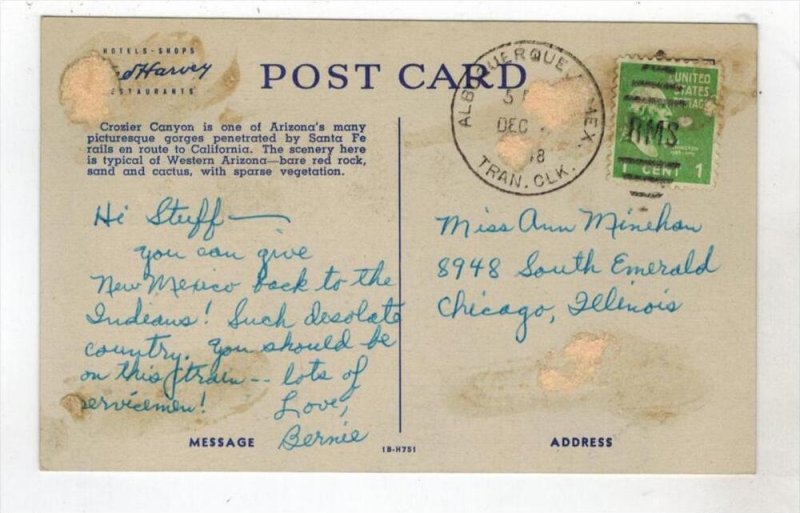 HOTELS - SHOPS
Harvey
RESTAURANTS
POST CARD
Crozier Canyon is one of Arizona's many
picturesque gorges penetrated by Santa Fe
rails en route to California. The scenery here
is typical of Western Arizona—bare red rock,
sand and cactus, with sparse vegetation.
ALBUQUERQUE, MEX.
5
DEC
8
TRAN. CLK.
UNITED
STATES
RMS
1 CENT 1
Hi Stuff —
you can give
New Mexico back to the
Indians! Such desolate
country. You should be
on this train -- lots of
servicemen!
Love,
Bernie
Miss Ann Minehan
8948 South Emerald
Chicago, Illinois
MESSAGE
1B-H751
ADDRESS